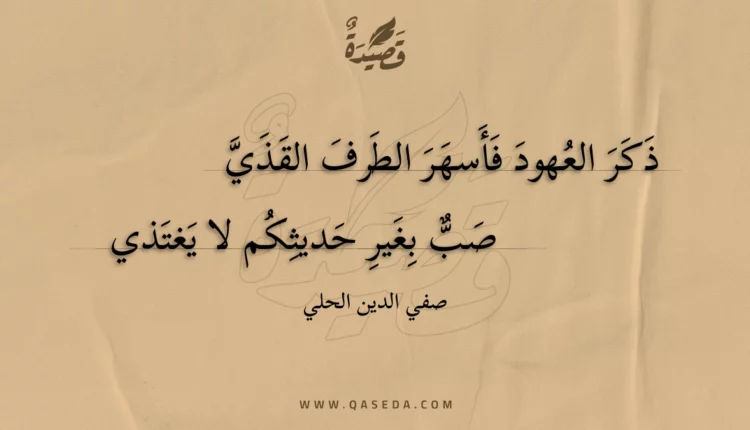 قَصِيْدَةٌ
ذَكَرَ العُهودَ فَأَسهَرَ الطَرفَ القَذَيَّ
صَبٌّ بِغَيرِ حَديثِكُم لا يَغتَذي
صفي الدين الحلي
WWW.QASEDA.COM